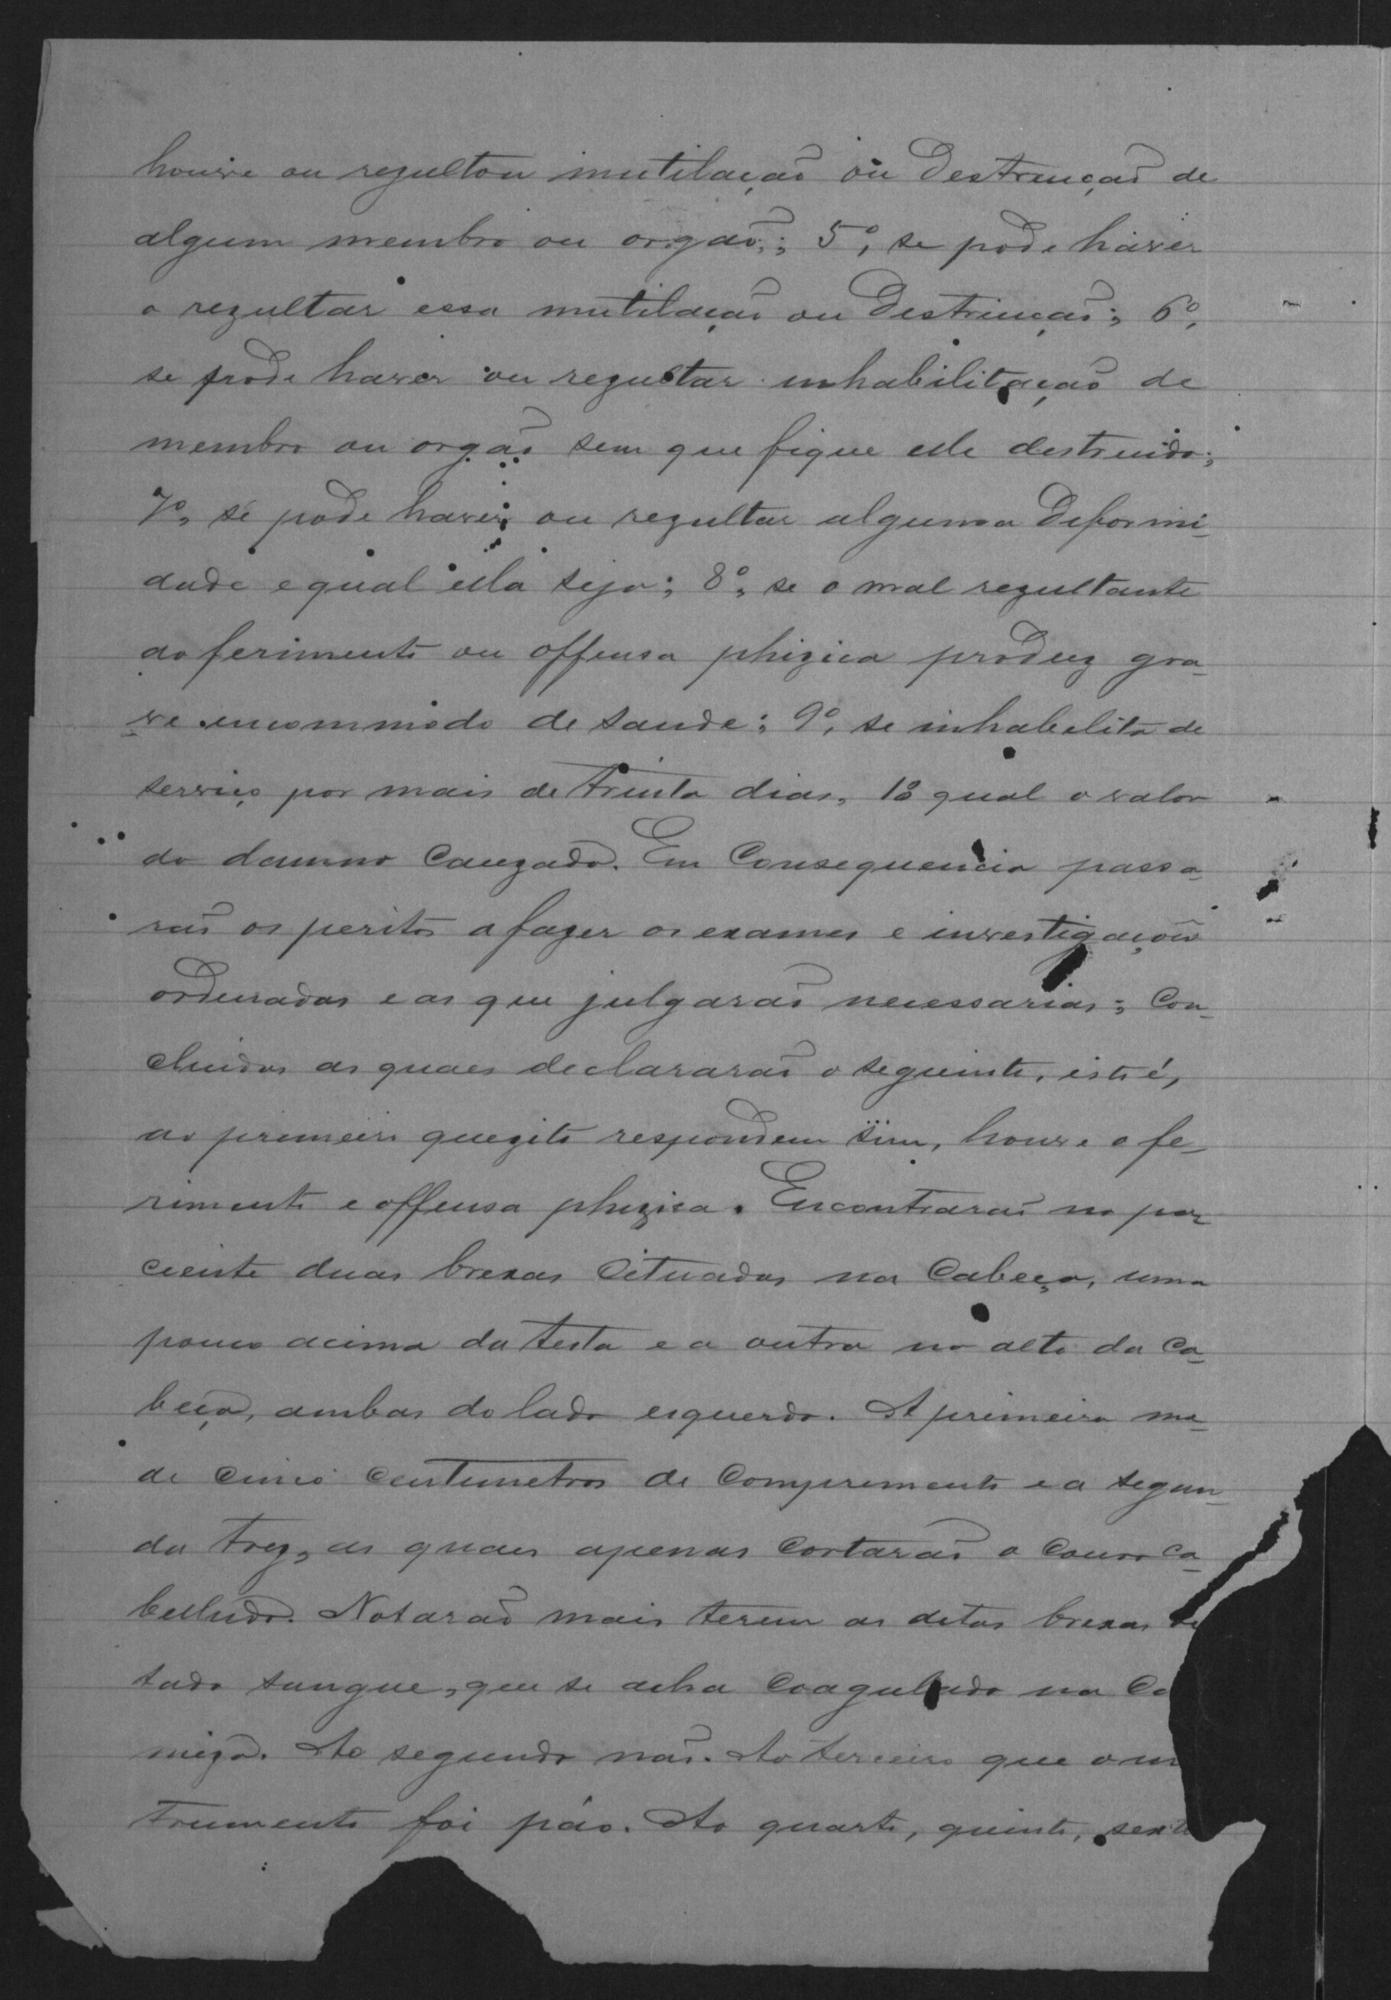 houve ou rezultou mutilação ou Destruição de
algum membro ou orgão; 5º, se pode haver
o rezultar essa mutilação ou Destruição; 6º,
se pode haver ou rezultar inhabilitação de
membro ou orgão sem que fique elle destruido;
7º, se pode haver ou rezultar alguma Deformi-
dade e qual ella seja; 8º, se o mal rezultante
do ferimento ou offensa phizica produz gra-
ve incommodo de saude; 9º, se inhabilita de
serviço por mais de trinta dias, 10 qual o valor
do damno Cauzado. Em Consequencia passa-
rão os peritos a fazer os exames e investigações
ordenadas e as que julgarão necessarias; Con-
cluidas as quaes declararão o seguinte, isto é,
ao primeiro quezito respondem sim, houve o fe-
rimento e offensa phizica. Encontrarão no pa-
ciente duas brexas Cituadas na Cabeça, uma
pouco acima da testa e a outra no alto da Ca-
beça, ambas do lado esquerdo. A primeira me-
de cinco centimetros de Comprimento e a segun-
da trez, as quaes apenas Cortarão o Couro Ca-
belludo. Notarão mais terem as ditas brexas
tado sangue, que se acha Coagulado na Ca
miza. Ao segundo não. Ao terceiro que o ins
trumento foi páo. Ao quarto, quinto, sexto